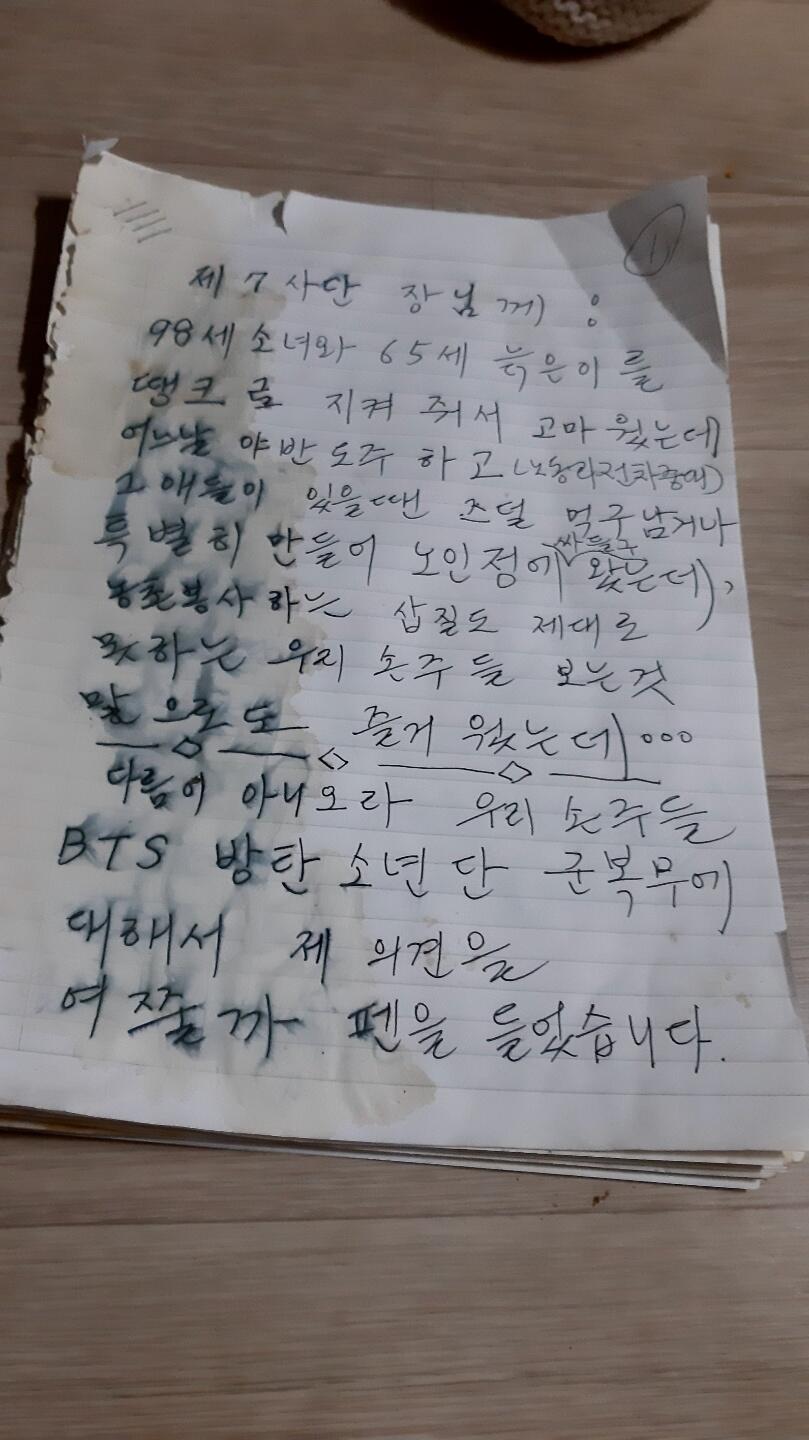 ①
제 7 사단 장님께 :
98세 소녀와 65세 늙은이를
땡크로 지켜 줘서 고마 웠는데
어느날 야반도주 하고 (노동리전차중대)
그 애들이 있을땐 즈덜 먹구남거나
특별히 만들어 노인정에 싸들구 왔는데,
농촌봉사하는 삽질도 제대로
못하는 우리 손주들 보는것
만 으로도 즐거 웠는데...
다름이 아니오라 우리 손주들
BTS 방탄 소년 단 군복무에
대해서 제 의견을
여쭐까 펜을 들었습니다.